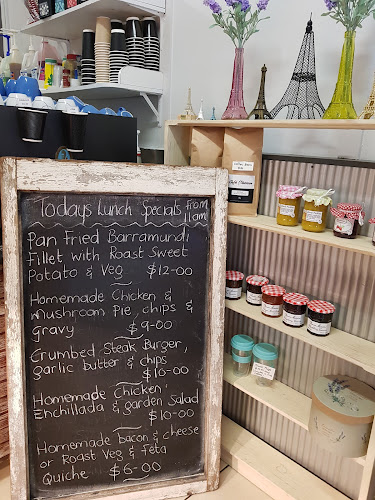 Todays Lunch Specials from
11am
Pan Fried Barramundi
Fillet with Roast Sweet
Potato & Veg $12-00
Homemade Chicken &
mushroom Pie, chips &
gravy $9-00
Crumbed Steak Burger,
garlic butter & chips
$10-00
Homemade Chicken
Enchillada & garden Salad
$10-00
Homemade bacon & cheese
or Roast Veg & Feta
Quiche $6-00